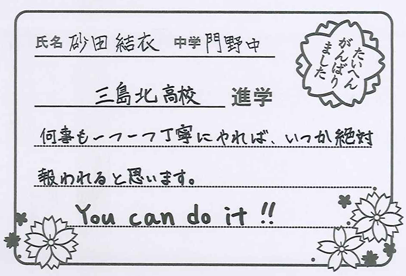 氏名 砂田 結衣 中学 門野中
たいへん
がんばり
ました
三島北高校 進学
何事も一つ一つ丁寧にやれば、いつか絶対
報われると思います。
You can do it !!